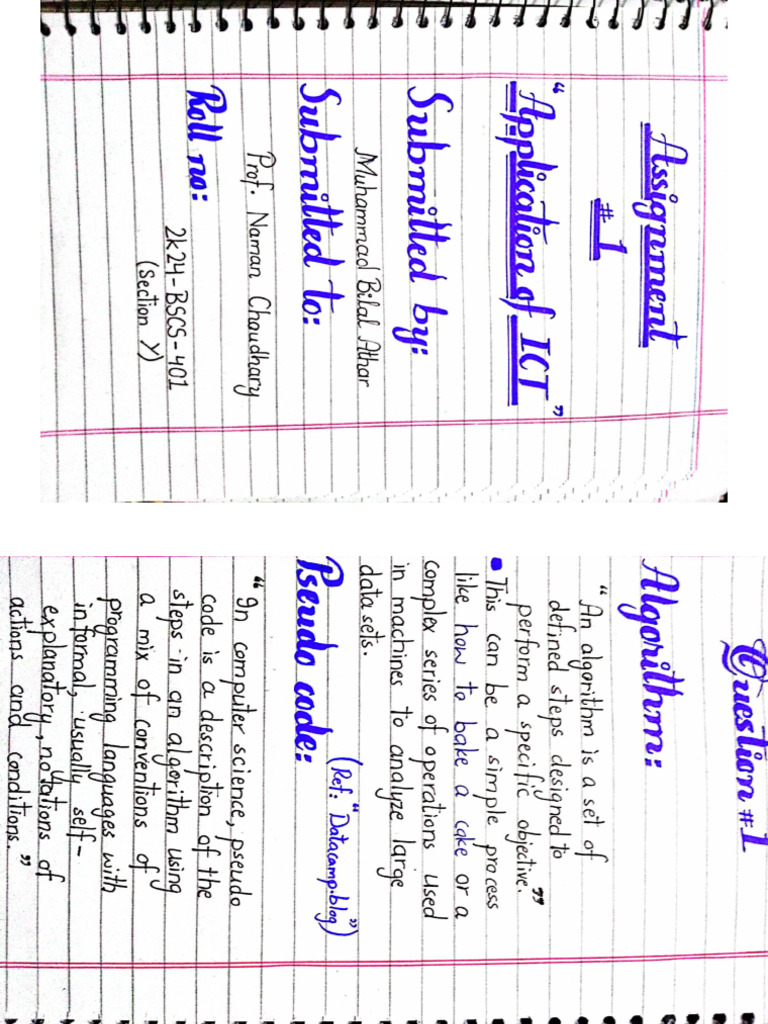 Assignment
#1
"Application of ICT"
Submitted by:
Muhammad Bilal Athar
Submitted to:
Prof. Naman Choudhary
Roll no:
2k24-BSCS-401
(Section Y)
Question #1
Algorithm:
"An algorithm is a set of
defined steps designed to
perform a specific objective."
▪ This can be a simple process
like how to bake a cake or a
complex series of operations used
in machines to analyze large
data sets.
(Ref: "Datacamp.blog")
Pseudo code:
"In computer science, pseudo
code is a description of the
steps in an algorithm using
a mix of conventions of
programming languages with
informal, usually self-
explanatory, notations of
actions and conditions."